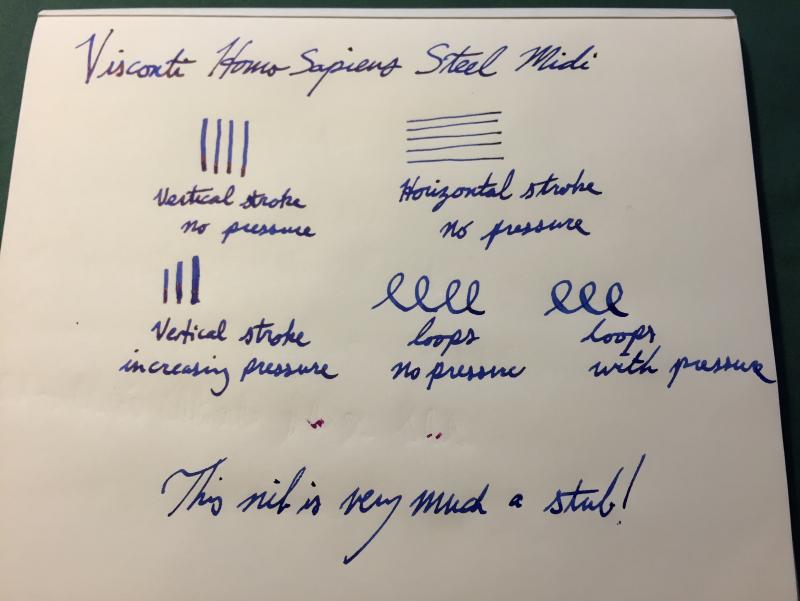 Visconti Homo Sapiens Steel Midi
Vertical stroke
no pressure
Horizontal stroke
no pressure
Vertical stroke
increasing pressure
loops
no pressure
loops
with pressure
This nib is very much a stub!